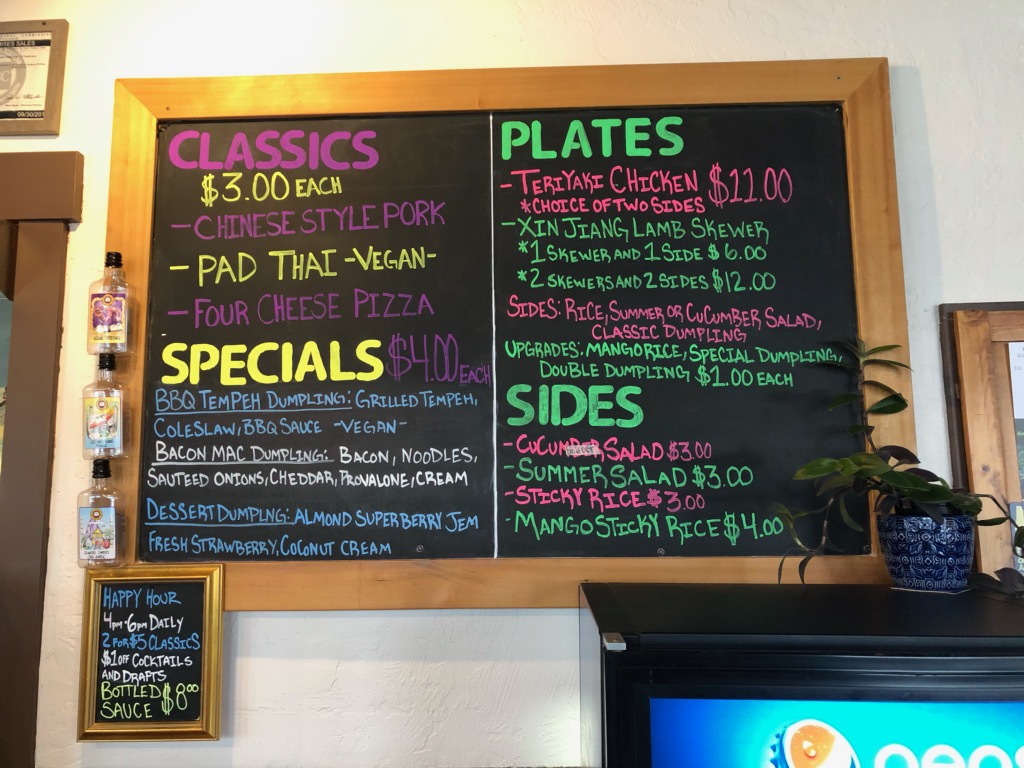 CLASSICS
$3.00 EACH
- CHINESE STYLE PORK
- PAD THAI -VEGAN-
- FOUR CHEESE PIZZA
SPECIALS $4.00 EACH
BBQ TEMPEH DUMPLING: GRILLED TEMPEH,
COLESLAW, BBQ SAUCE -VEGAN-
BACON MAC DUMPLING: BACON, NOODLES,
SAUTEED ONIONS, CHEDDAR, PROVALONE, CREAM
DESSERT DUMPLNG: ALMOND SUPERBERRY JEM
FRESH STRAWBERRY, COCONUT CREAM
PLATES
- TERIYAKI CHICKEN $11.00
*CHOICE OF TWO SIDES
- XIN JIANG LAMB SKEWER
*1 SKEWER AND 1 SIDE $6.00
*2 SKEWERS AND 2 SIDES $12.00
SIDES: RICE, SUMMER OR CUCUMBER SALAD,
CLASSIC DUMPLING
UPGRADES: MANGO RICE, SPECIAL DUMPLING,
DOUBLE DUMPLING $1.00 EACH
SIDES
- CUCUMBER SALAD $3.00
- SUMMER SALAD $3.00
- STICKY RICE $3.00
- MANGO STICKY RICE $4.00
HAPPY HOUR
4PM-6PM DAILY
2 FOR $5 CLASSICS
$1 OFF COCKTAILS
AND DRAFTS
BOTTLED
SAUCE $8.00
SALES
09/30/201
peps